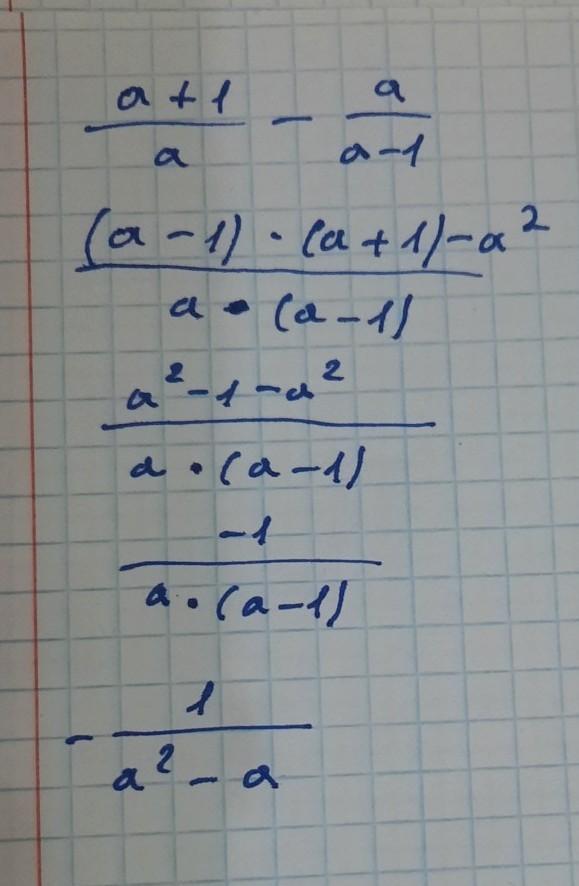 a + 1 / a − a / a − 1
(a − 1) · (a + 1) − a² / a · (a − 1)
a² − 1 − a² / a · (a − 1)
−1 / a · (a − 1)
− 1 / a² − a